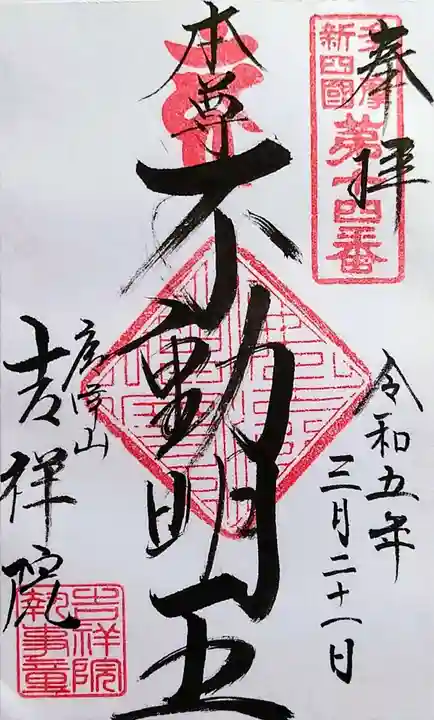 奉拝
多摩新四國
第十四番
令和五年
三月二十一日
本尊
不動明王
吉祥院
吉祥院執事章